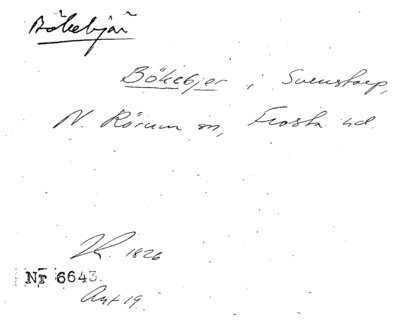 Bökebjär
Bökebjer i Svenstorp,
N. Rörum sn, Frosta hd.
1826
Nr 6643.
Ant 19.